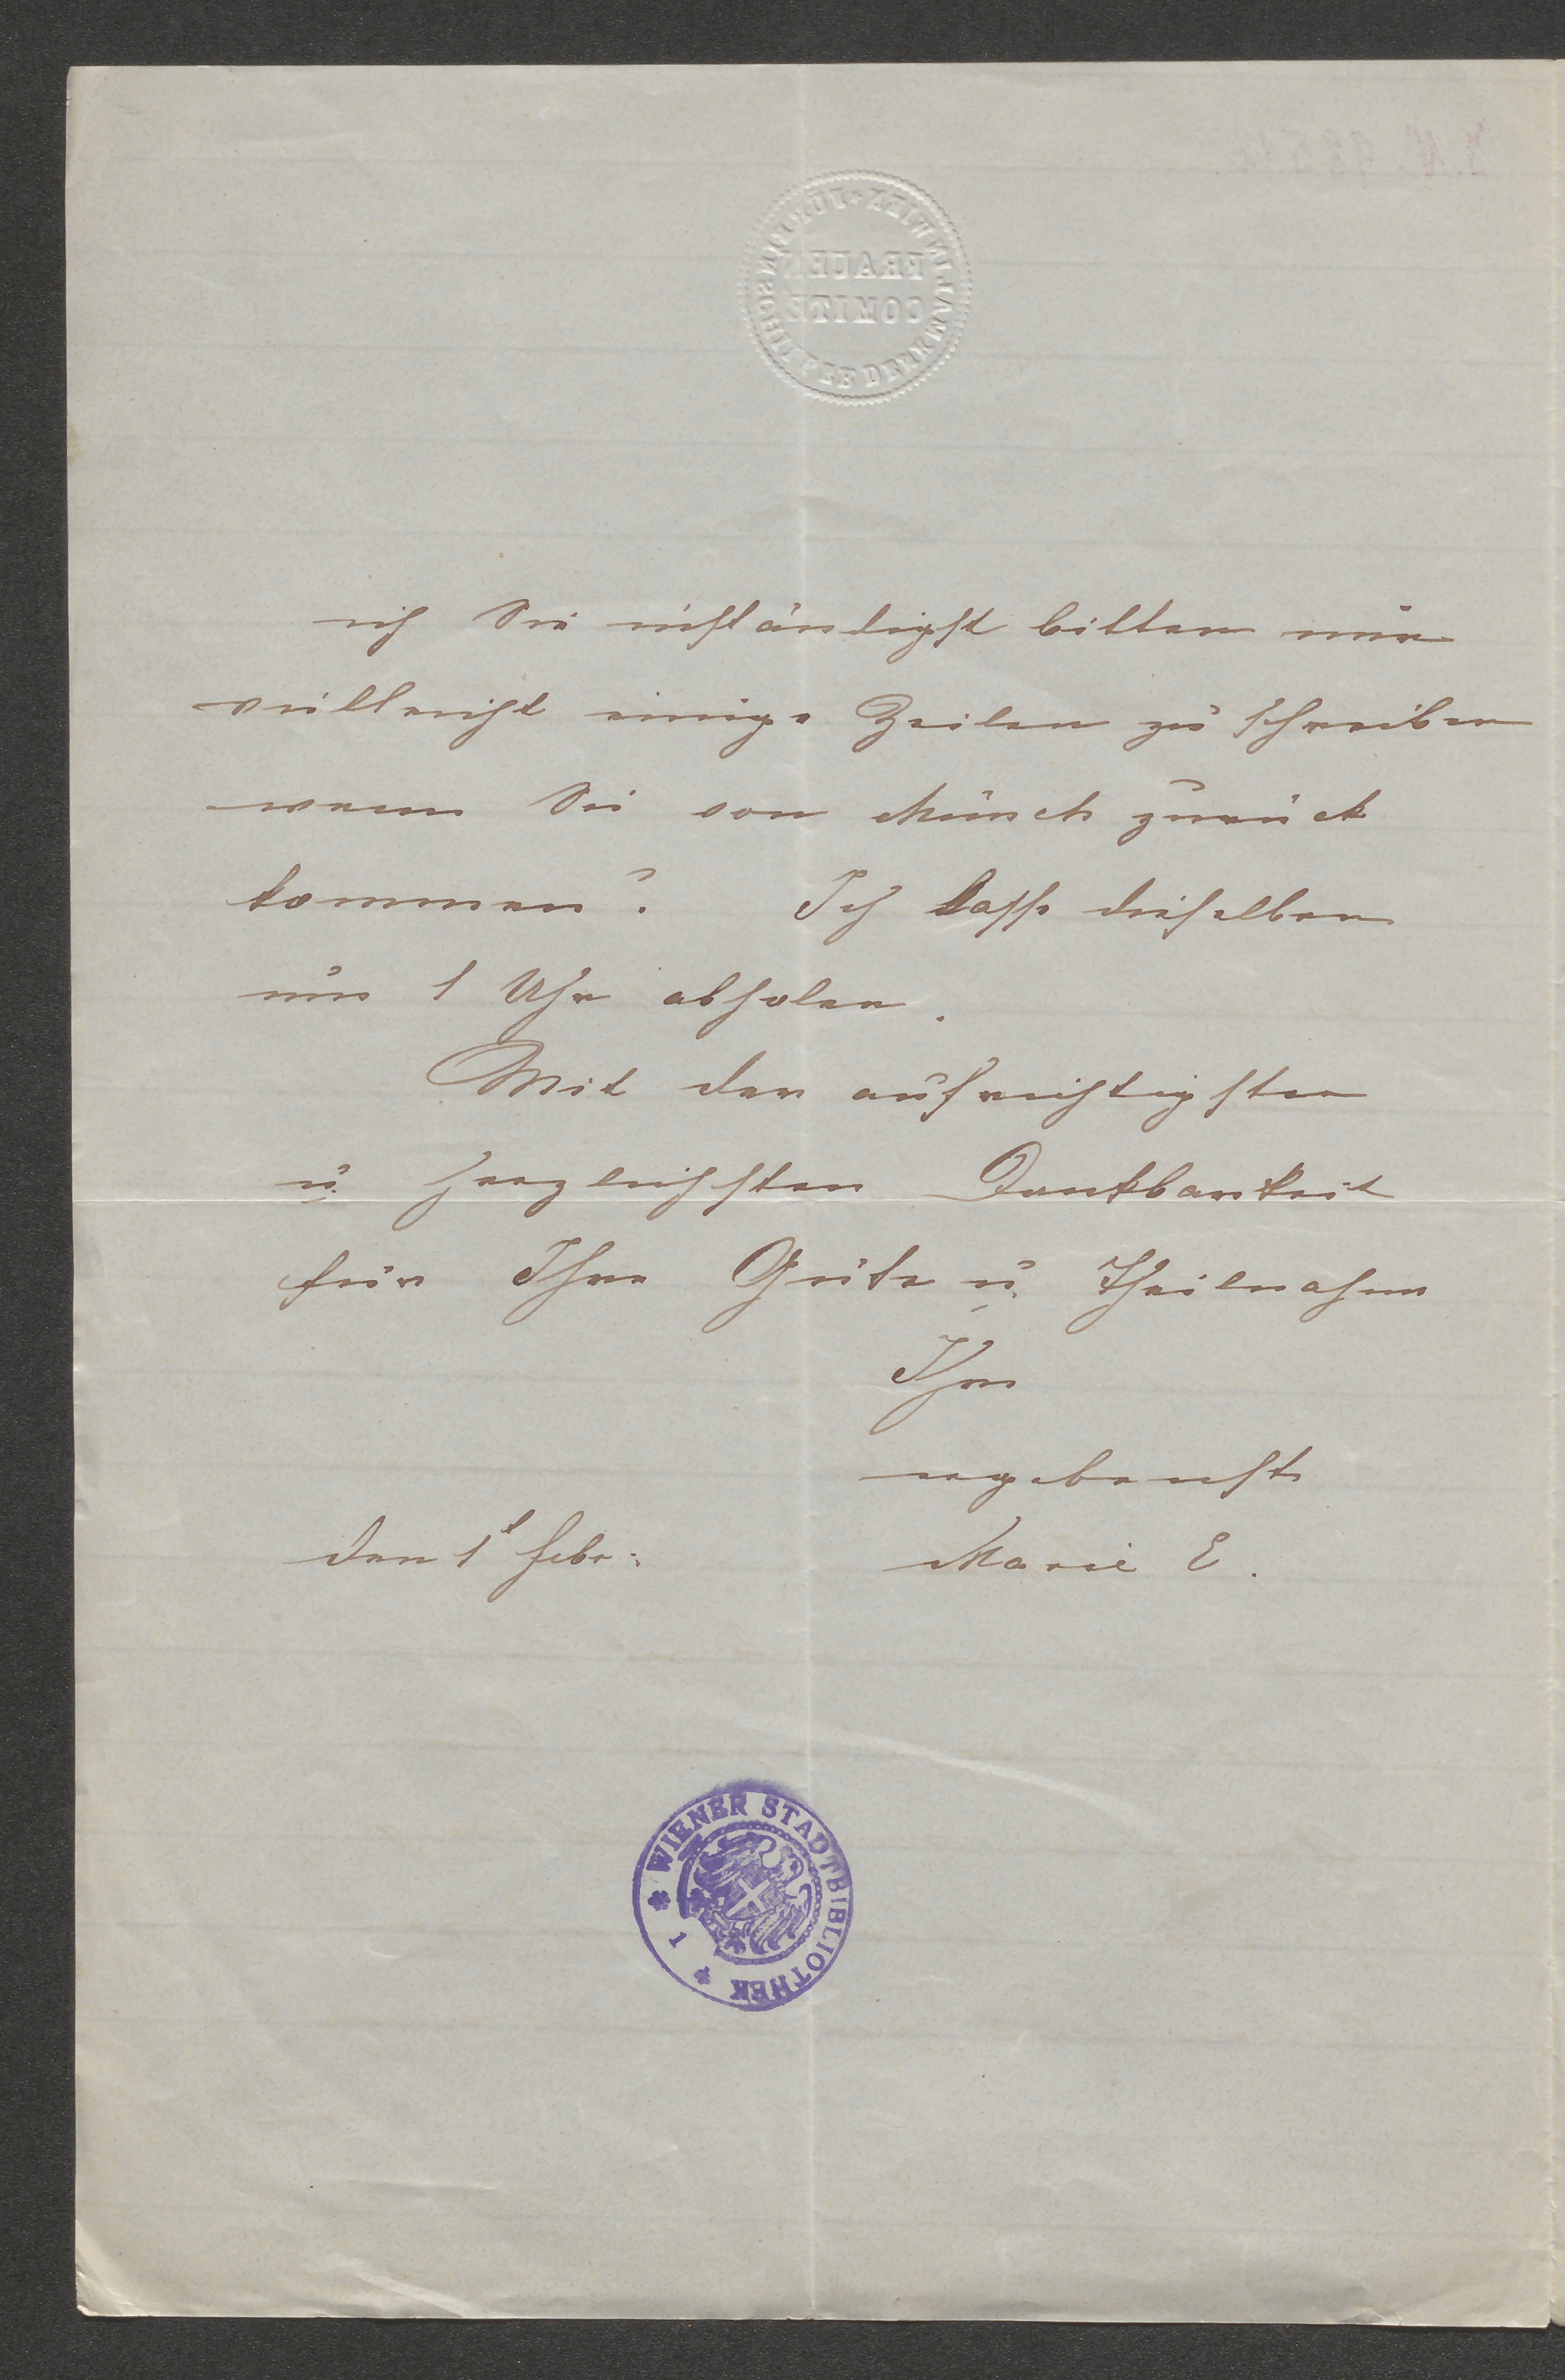 FRAUEN
COMITÉ
ich Sie inständigst bitten mir
vielleicht einige Zeilen zu schreiben
wenn Sie von Münch zurück
kommen? Ich lasse dieselben
um 1 Uhr abholen.
Mit der aufrichtigsten
u. herzlichsten Dankbarkeit
für Ihre Güte u. Theilnahme
Ihre
ergebenste
den 1t Febr: Marie E.
WIENER STADTBIBLIOTHEK
1